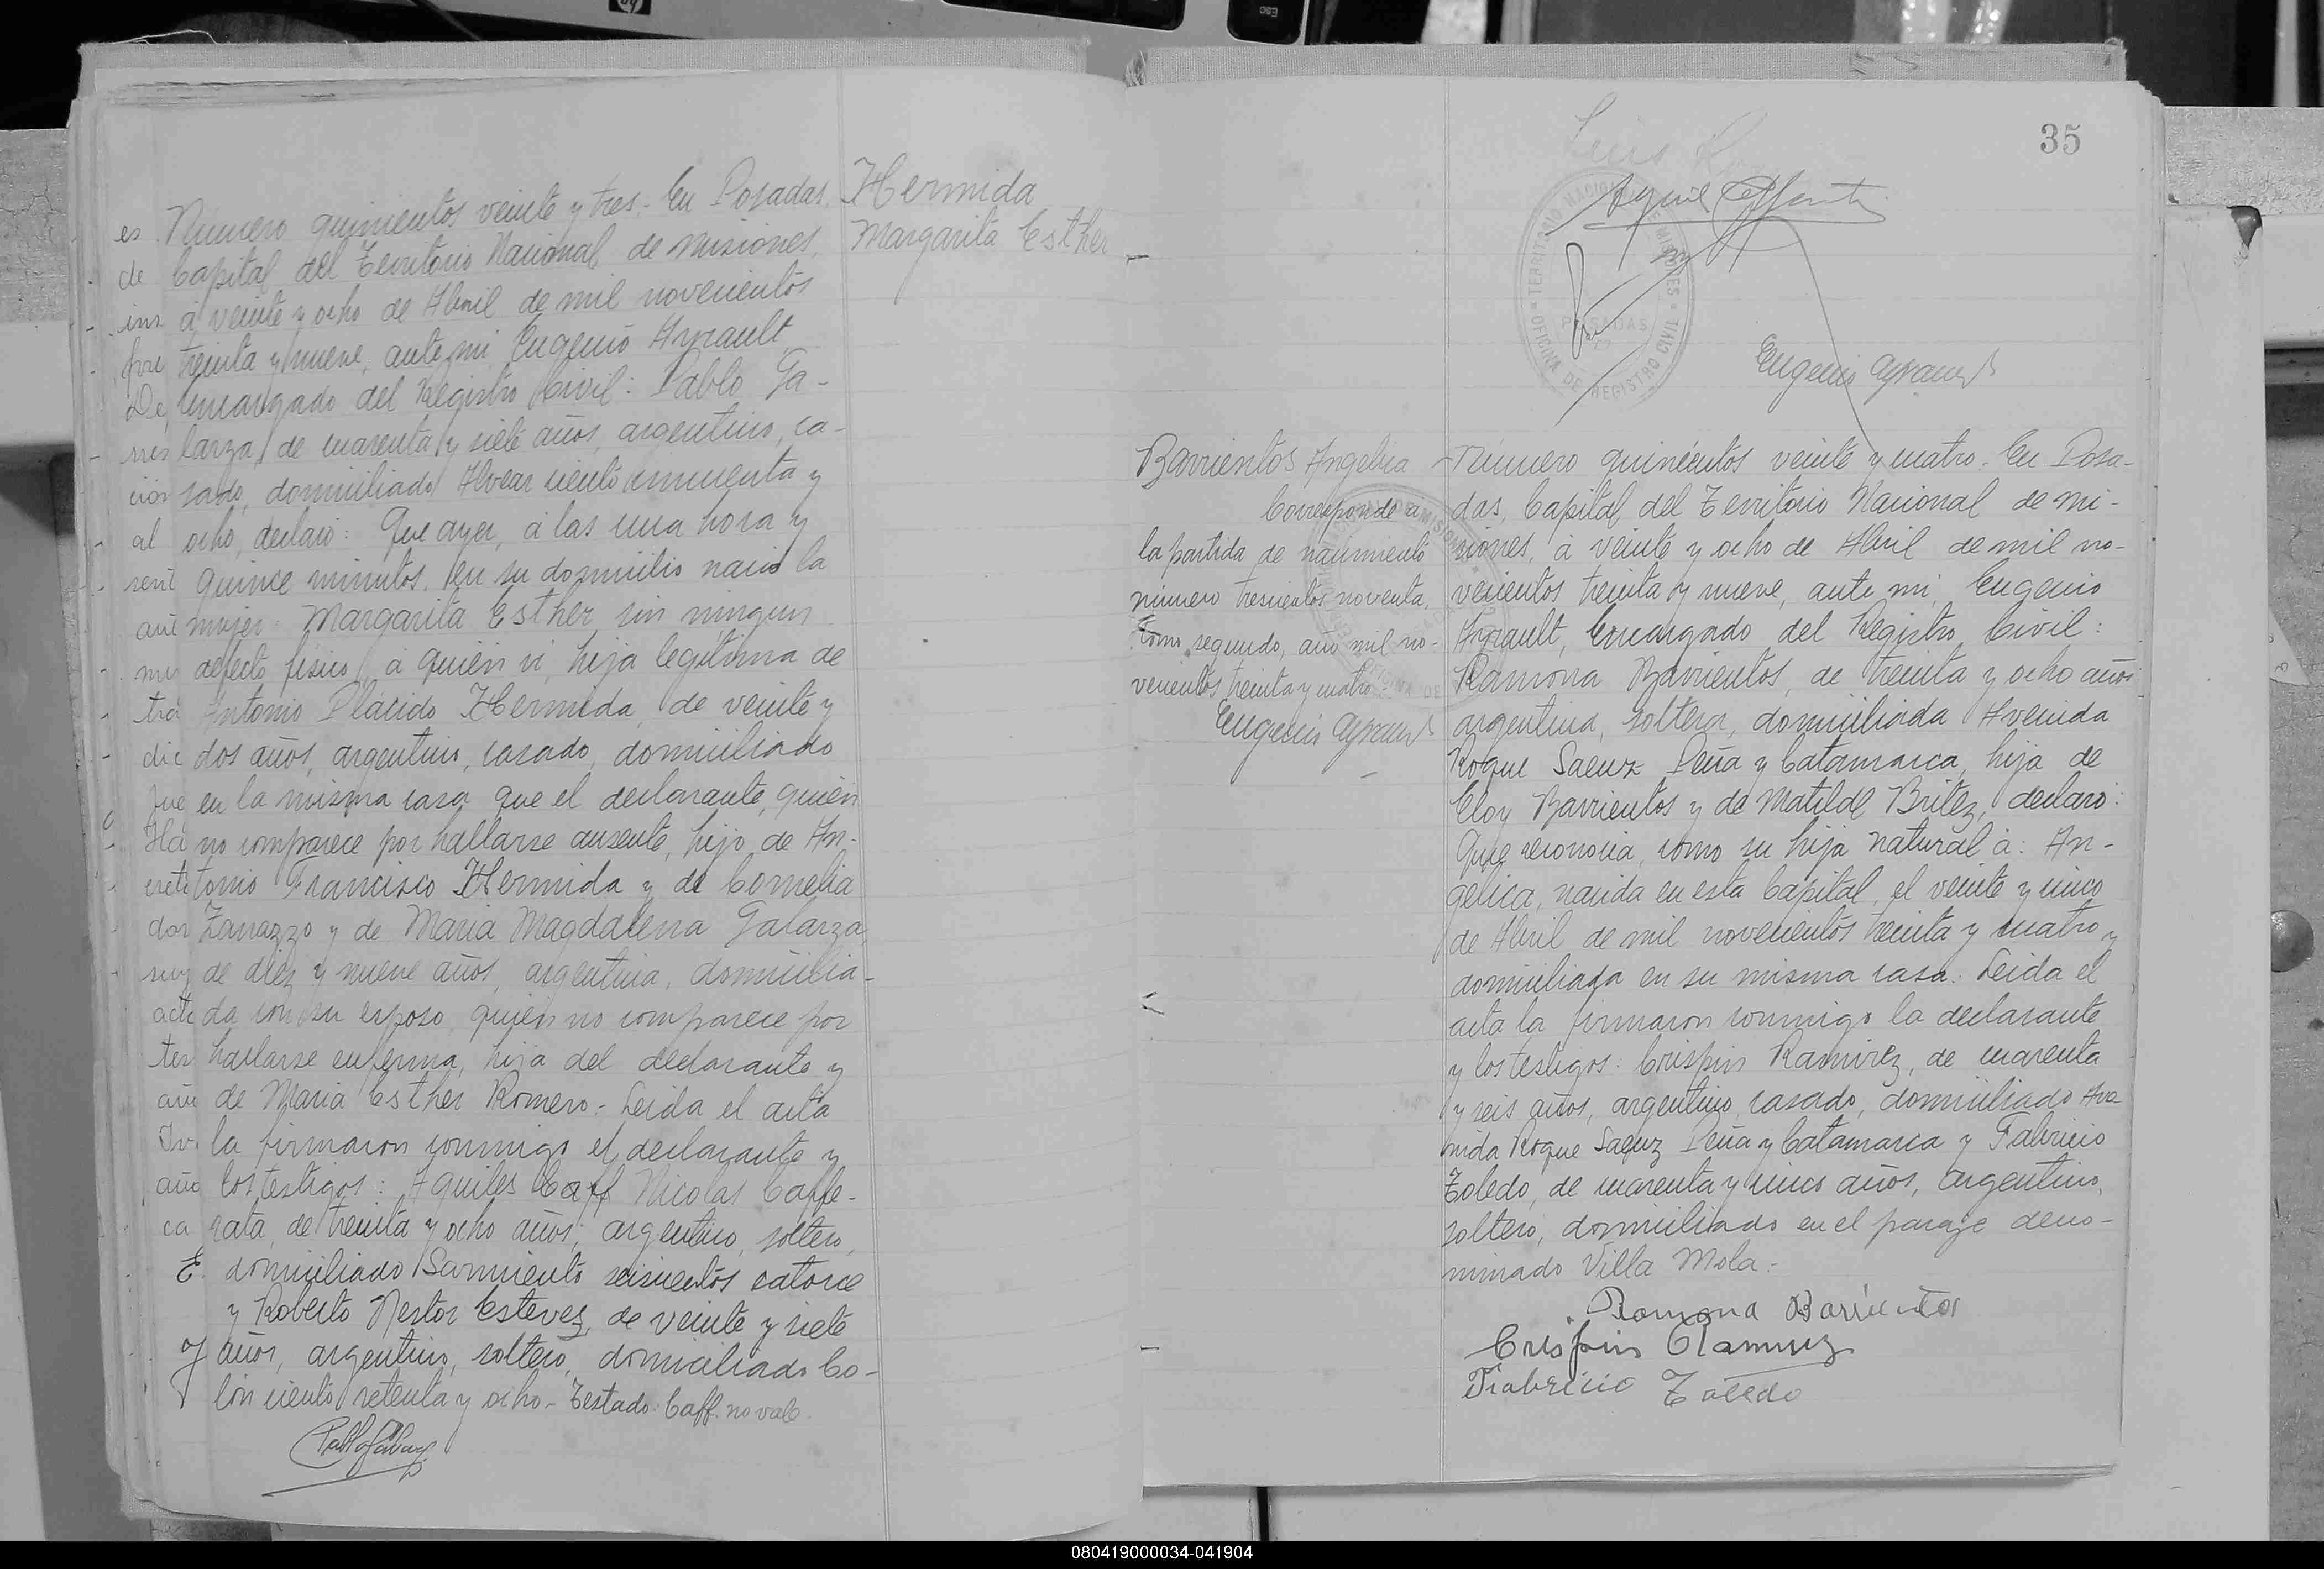 Hermida
Margarita Esther
Número quinientos veinte y tres.- En Posadas,
Capital del Territorio Nacional de Misiones,
à veinte y ocho de Abril de mil novecientos
treinta y nueve, ante mi, Eugenio Ayrault,
Encargado del Registro Civil: Pablo Ga-
larza, de cuarenta y siete años, argentino, ca-
sado, domiciliado Alvear ciento cincuenta y
ocho, declaró: Que ayer, à las una hora y
quince minutos, en su domicilio nació la
mujer Margarita Esther sin ningun
defecto fisico, à quien vi, hija legitima de
Antonio Plácido Hermida, de veinte y
dos años, argentino, casado, domiciliado
en la misma casa que el declarante, quien
no comparece por hallarse ausente, hijo de An-
tonio Francisco Hermida y de Cornelia
Zanazzo y de Maria Magdalena Galarza,
de diez y nueve años, argentina, domicilia-
da con su esposo, quien no comparece por
hallarse enferma, hija del declarante y
de Maria Esther Romero.- Leida el acta
la firmaron conmigo el declarante y
los testigos: Aquiles Caff Nicolas Caffe-
rata, de treinta y ocho años, argentino, soltero,
domiciliado Sarmiento seiscientos catorce
y Roberto Nestor Esteves, de veinte y siete
años, argentino, soltero, domiciliado Co-
lón ciento setenta y ocho.- Testado: Caff. no vale.
35
TERRITORIO NACIONAL DE MISIONES
POSADAS
OFICINA DE REGISTRO CIVIL
Eugenio Ayrault
Barrientos Angelica
Corresponde à
la partida de nacimiento
número trescientos noventa,
tomo segundo, año mil no-
vecientos treinta y cuatro.-
Eugenio Ayrault
Número quinientos veinte y cuatro.- En Posa-
das, Capital del Territorio Nacional de Mi-
siones, à veinte y ocho de Abril de mil no-
vecientos treinta y nueve, ante mi, Eugenio
Ayrault, Encargado del Registro Civil:
Ramona Barrientos, de treinta y ocho años
argentina, soltera, domiciliada Avenida
Roque Saenz Peña y Catamarca, hija de
Eloy Barrientos y de Matilde Britez, declaro:
Que reconocia, como su hija natural à: An-
gelica, nacida en esta Capital, el veinte y cinco
de Abril de mil novecientos treinta y cuatro y
domiciliada en su misma casa. Leida el
acta la firmaron conmigo la declarante
y los testigos: Crispin Ramirez, de cuarenta
y seis años, argentino, casado, domiciliado Ave
nida Roque Saenz Peña y Catamarca y Fabricio
Toledo, de cuarenta y cinco años, argentino,
soltero, domiciliado en el paraje deno-
minado Villa Mola.-
Ramona Barrientos
Crispin Ramirez
Fiabricio Toledo
080419000034-041904